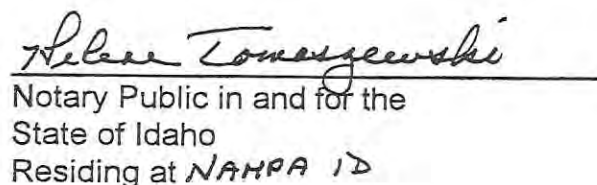 Helene Tomaszewski
Notary Public in and for the
State of Idaho
Residing at NAMPA ID